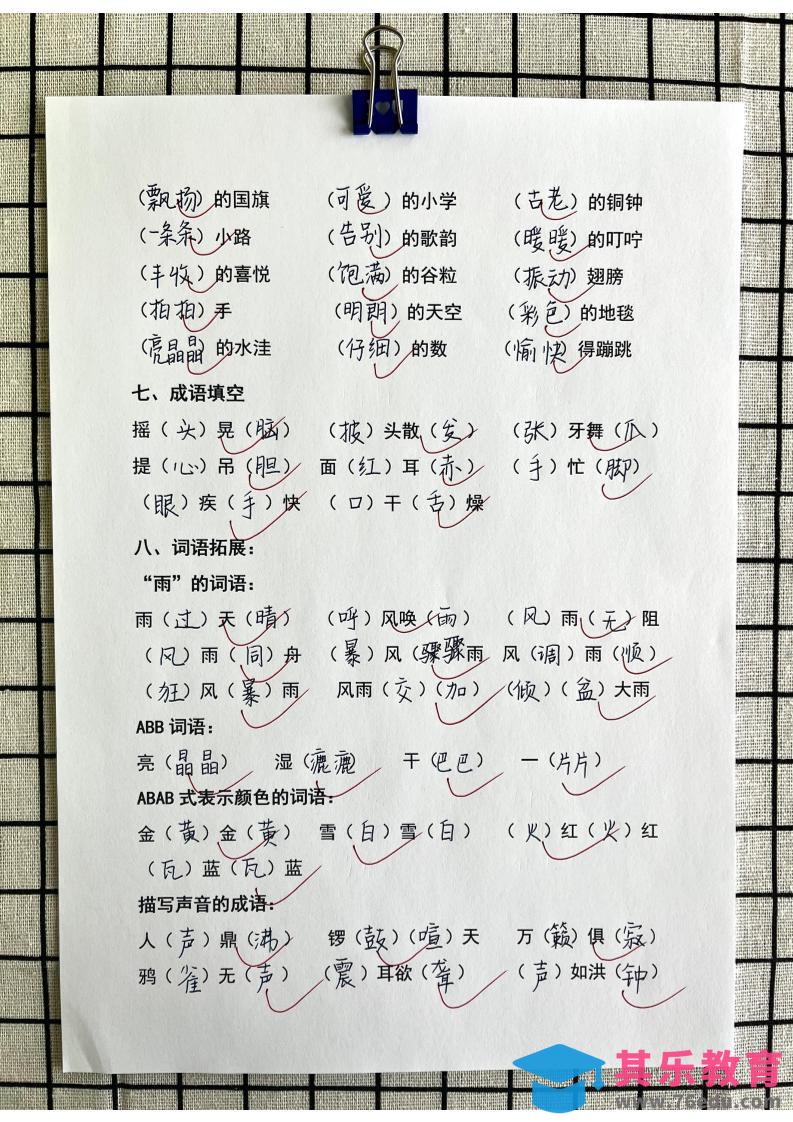 （飘扬）的国旗 （可爱）的小学 （古老）的铜钟
（一条条）小路 （告别）的歌韵 （暖暖）的叮咛
（丰收）的喜悦 （饱满）的谷粒 （振动）翅膀
（拍拍）手 （明朗）的天空 （彩色）的地毯
（亮晶晶）的水洼 （仔细）的数 （愉快）得蹦跳
七、成语填空
摇（头）晃（脑） （披）头散（发） （张）牙舞（爪）
提（心）吊（胆） 面（红）耳（赤） （手）忙（脚）
（眼）疾（手）快 （口）干（舌）燥
八、词语拓展：
“雨”的词语：
雨（过）天（晴） （呼）风唤（雨） （风）雨（无）阻
（风）雨（同）舟 （暴）风（骤骤雨 风（调）雨（顺）
（狂）风（暴）雨 风雨（交）（加） （倾）（盆）大雨
ABB 词语：
亮（晶晶） 湿（漉漉） 干（巴巴） 一（片片）
ABAB 式表示颜色的词语：
金（黄）金（黄） 雪（白）雪（白） （火）红（火）红
（瓦）蓝（瓦）蓝
描写声音的成语：
人（声）鼎（沸） 锣（鼓）（喧）天 万（籁）俱（寂）
鸦（雀）无（声） （震）耳欲（聋） （声）如洪（钟）
其乐教育
www.76edu.com